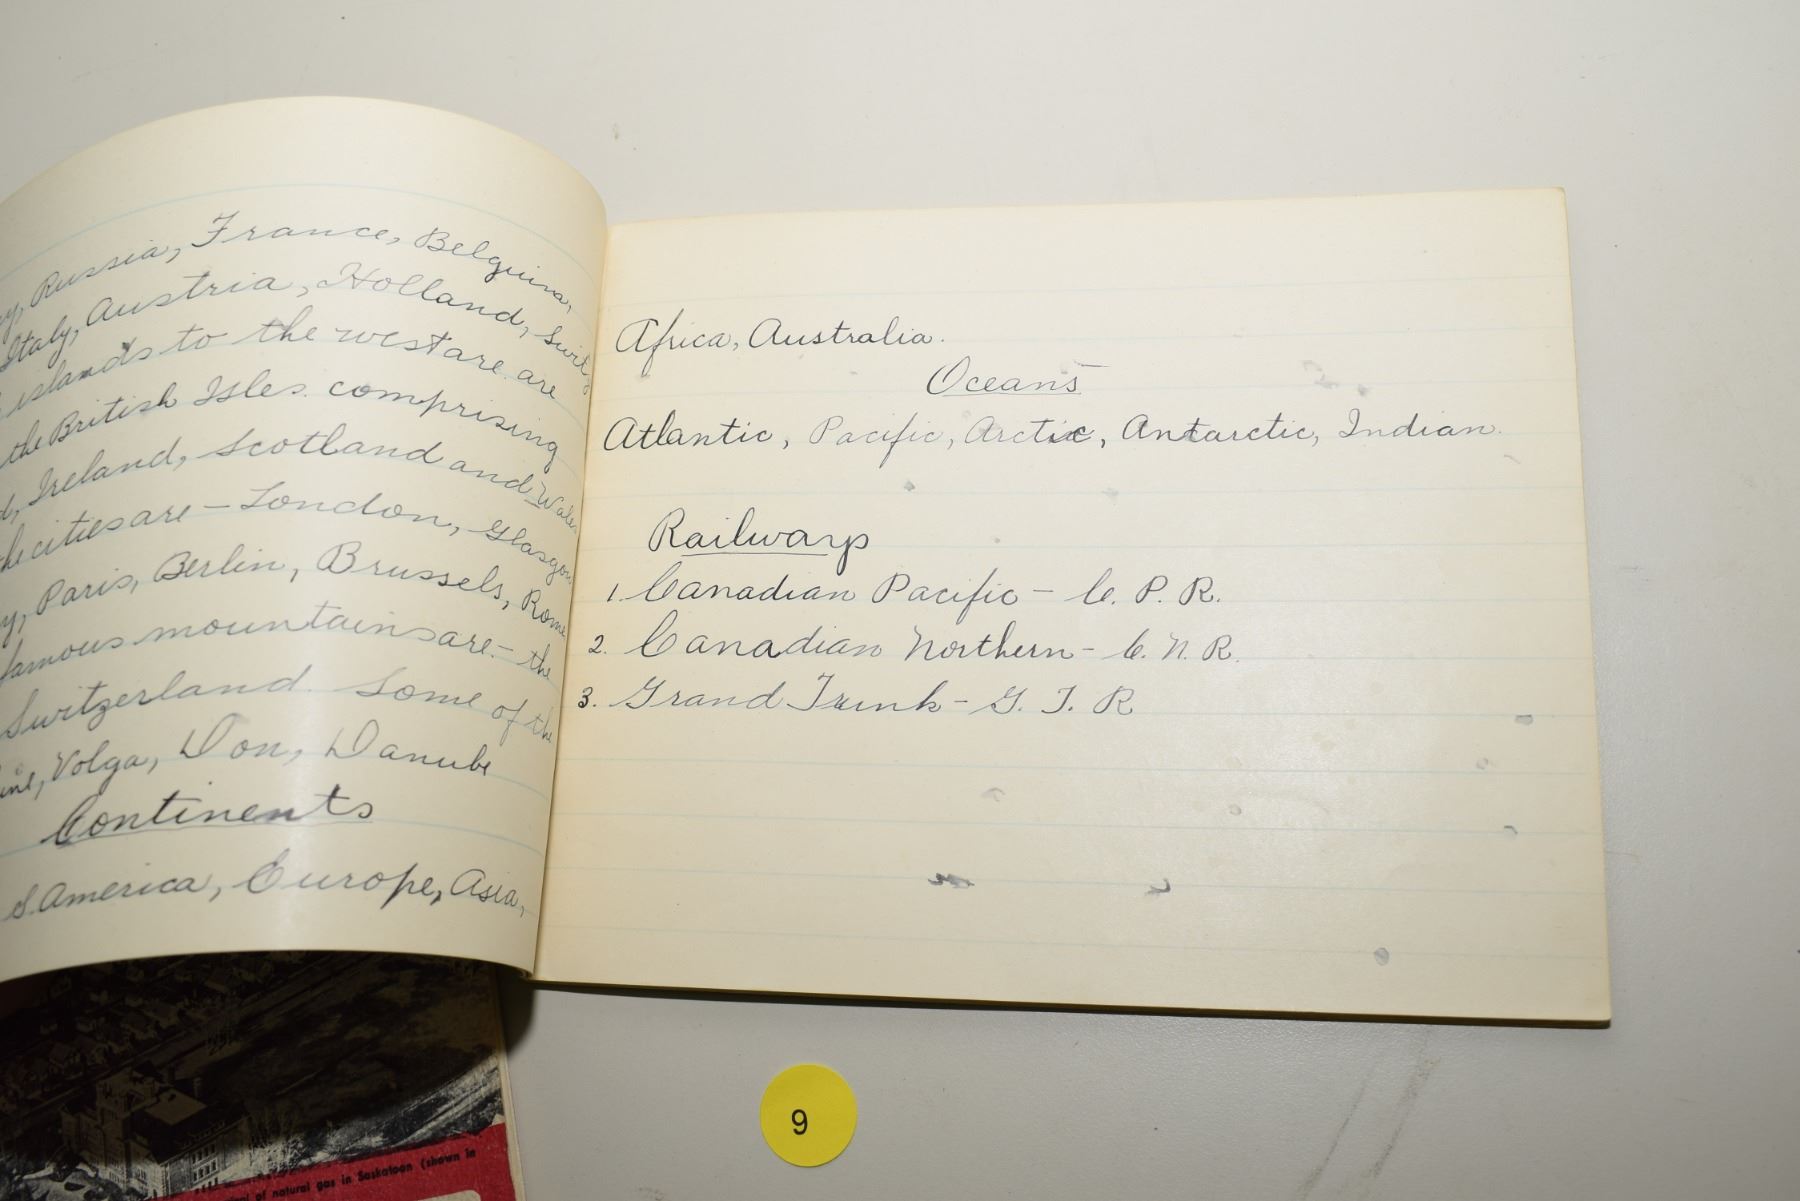 Russia, France, Belguim,
Italy, Austria, Holland, Switz
islands to the west are are
the British Isles comprising
Ireland, Scotland and Wales
the cities are - London, Glasgow,
Paris, Berlin, Brussels, Rome
famous mountains are - the
Switzerland. Some of the
Volga, Don, Danube
Continents
S. America, Europe, Asia,
Africa, Australia.
Oceans
Atlantic, Pacific, Arctic, Antarctic, Indian.
Railways
1. Canadian Pacific - C. P. R.
2. Canadian Northern - C. N. R.
3. Grand Trunk - G. T. R
of natural gas in Saskatoon (shown in
9